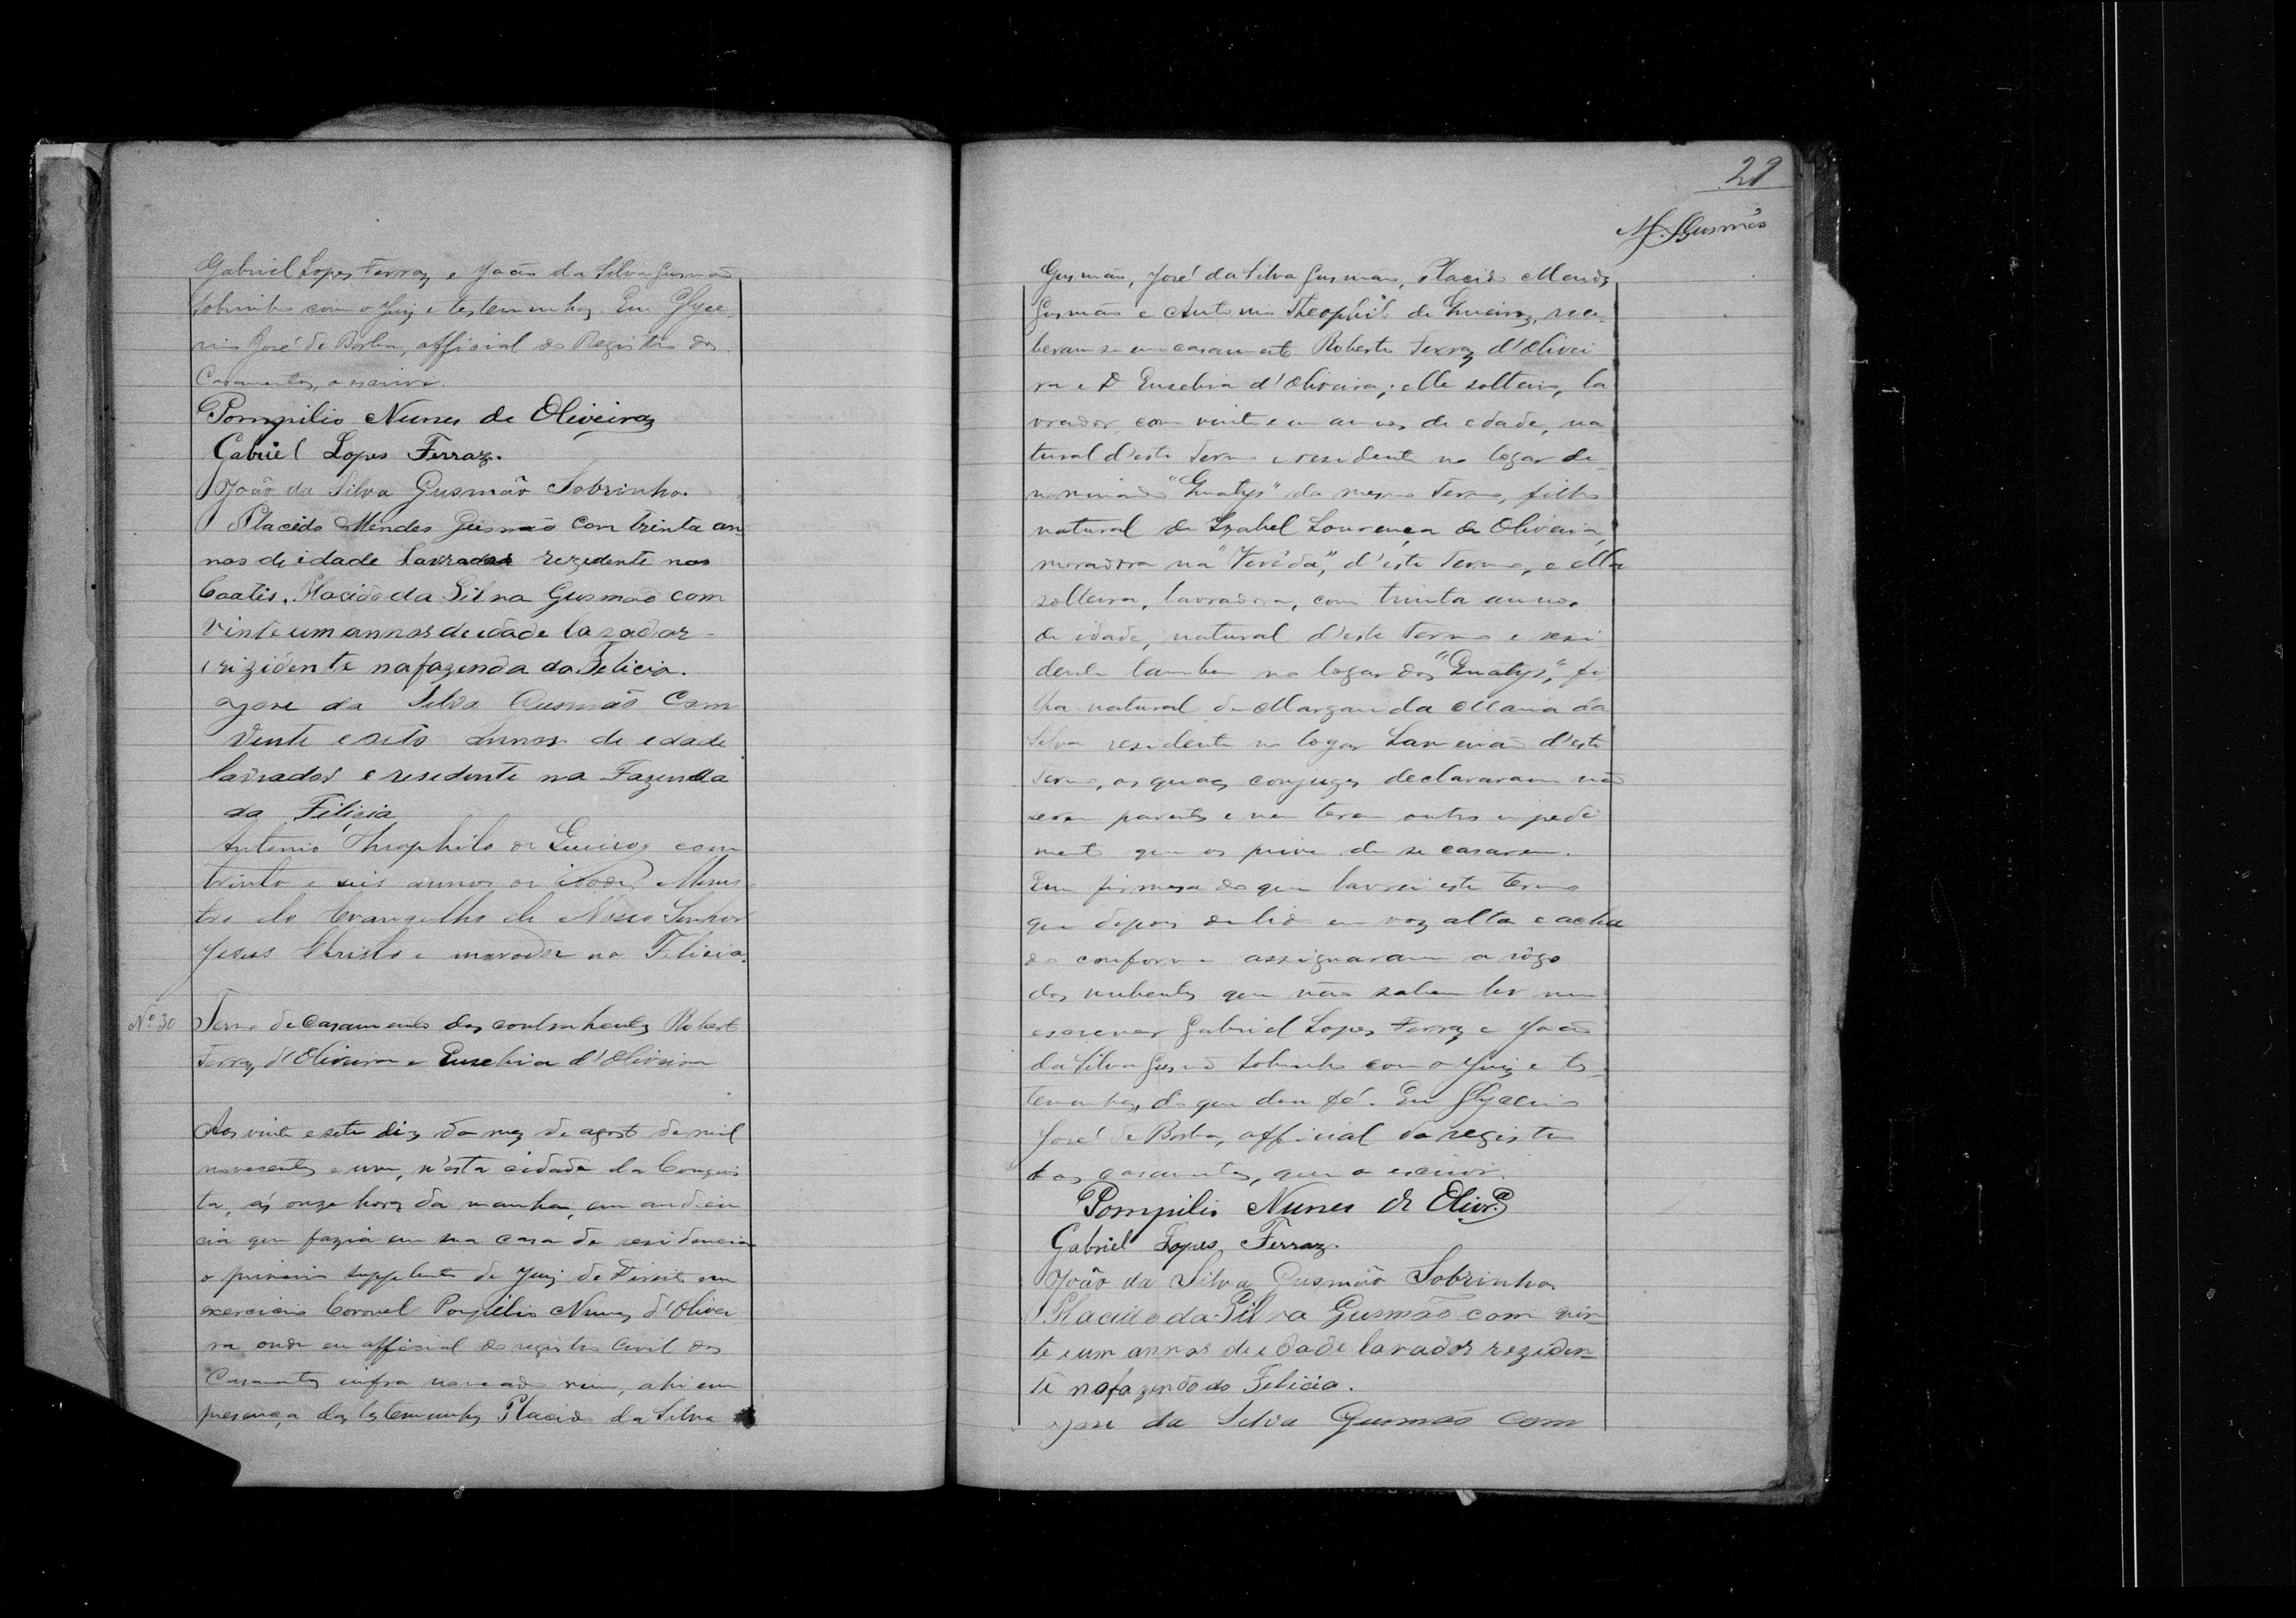 Gabriel Lopes Ferraz e João da Silva Gusmão
Sobrinho com o Juiz e testemunhas. Eu Glyce
rio José de Borba, official do Registro dos
Casamentos, o escrivi.
Pompilio Nunes de Oliveira
Gabriel Lopes Ferraz.
João da Silva Gusmão Sobrinho.
Placido Mendes Gusmão com trinta an
nos de idade Lavrador rezedente nos
Coatis. Placido da Silva Gusmão com
vinte um annos de idade lavrador
e rizidente na fazenda da Felicia.
Jose da Silva Gusmão Com
Vinte e seto annos de edade
lavrador e resedente na Fazenda
da Filicia
Antonio Theophilo de Queiroz com
trinta e seis annos de idade Menis
tro do Evangelho de Nosso Senhor
Jesus Christo e morador na Felicia.
Nº 30
Termo de Casamento dos contrahentes Roberto
Ferraz d'Oliveira e Eusebia d'Oliveira
Aos vinte e sete dias do mez de agosto de mil
novecentos e um, n'esta cidade da Conquis
ta, ás onze horas da manha, em audien
cia que fazia em sua casa de residencia
o primeiro supplente de Juiz de Direito em
exercicio Coronel Pompilio Nunes d'Olivei
ra onde eu official do registro Civil dos
Casamentos infra nomeado vim, ahi em
presença das testemunhas Placido da Silva
29
M. Gusmão
Gusmão, José da Silva Gusmão, Placido Mendes
Gusmão e Antonio Theophilo de Queiroz, rece
beram se em casamento Roberto Ferraz d'Olivei
ra e D Eusebia d'Oliveira; elle solteiro, la
vrador, com vinte e um annos de edade, na
tural d'este Termo e residente no logar de
nominado "Quatys" do mesmo Termo, filho
natural de Izabel Lourença de Oliveira,
moradora na "Veréda", d'este Termo, e ella
solteira, lavradora, com trinta annos
de idade, natural d'este termo e resi
dente tambem no logar dos "Quatys", fi
lha natural de Margarida Maria da
Silva residente no logar d'este
Termo, os quaes conjuges declararam não
serem parentes e nem terem outro impedi
mento que os prive de se casarem.
Em firmeza do que lavrei este termo
que depois de lido em voz alta e acha
do conforme assignaram a rôgo
dos nubentes que não sabem ler nem
escrever Gabriel Lopes Ferraz e João
da Silva Gusmão Sobrinho com o Juiz e tes
temunhas, do que dou fé. Eu Glycerio
José de Borba, official do registro
dos casamentos, que o escrivi.
Pompilio Nunes de Olivrª
Gabriel Lopes Ferraz.
João da Silva Gusmão Sobrinho.
Placido da Silva Gusmão com vin
te e um annos de edade lavrador reziden
te na fazenda do Felicia.
Jose da Silva Gusmão Com